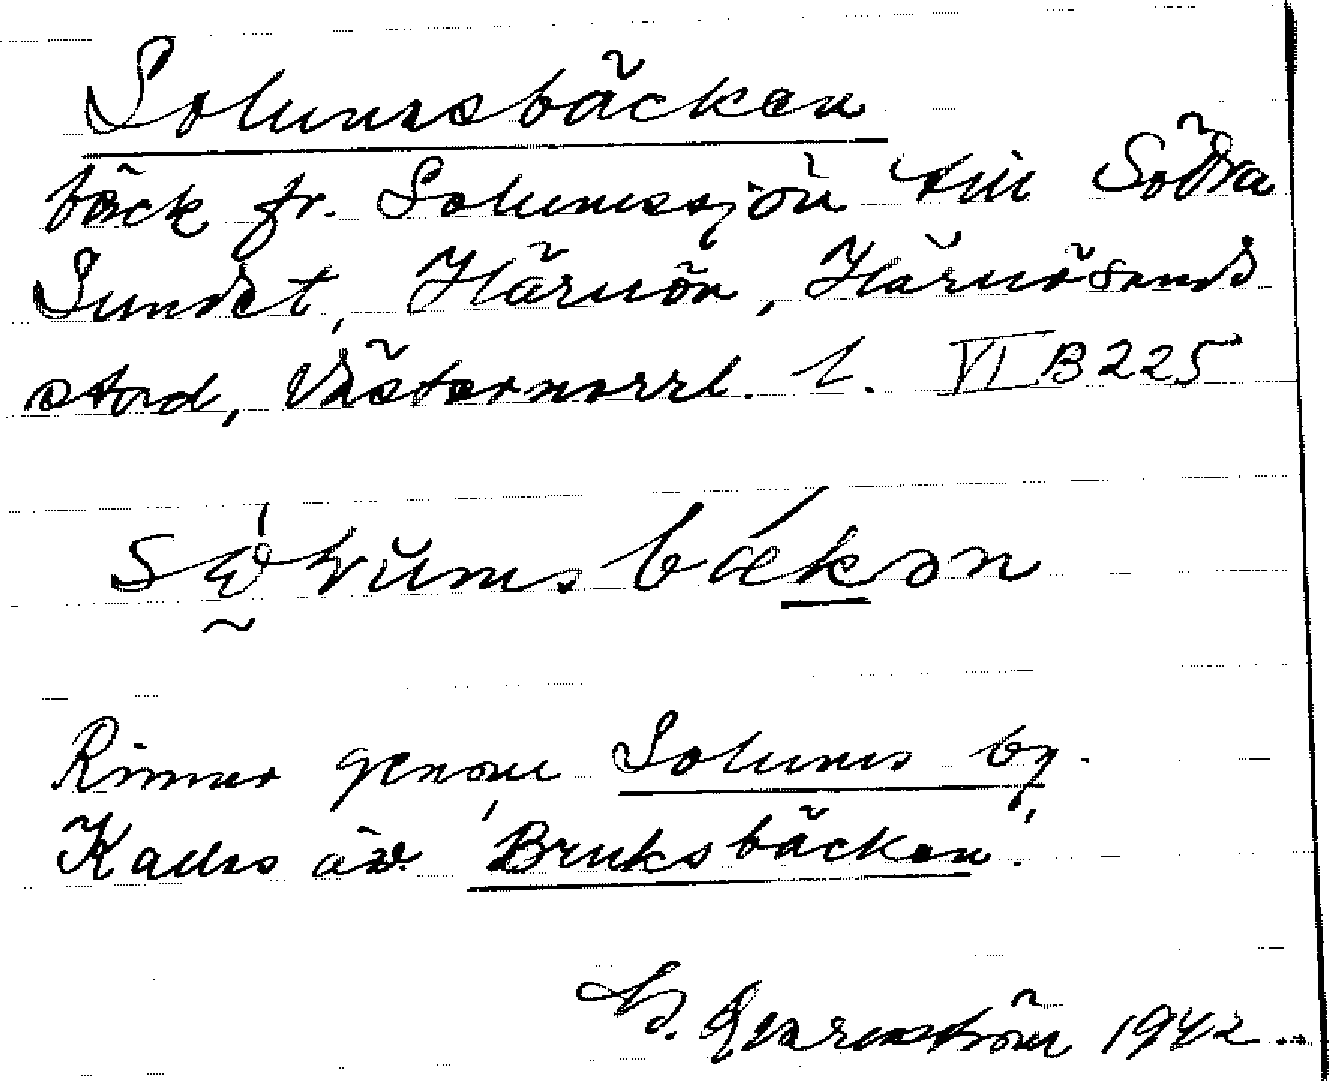 Solumsbäcken
bäck fr. Solumssjön till Södra
Sundet, Härnön, Härnösands
stad, Västernorrl. l. VI B 225
bækən
Rinner genom Solums by.
Kallas äv. 'Bruksbäcken'.
G. Qvarnström 1942